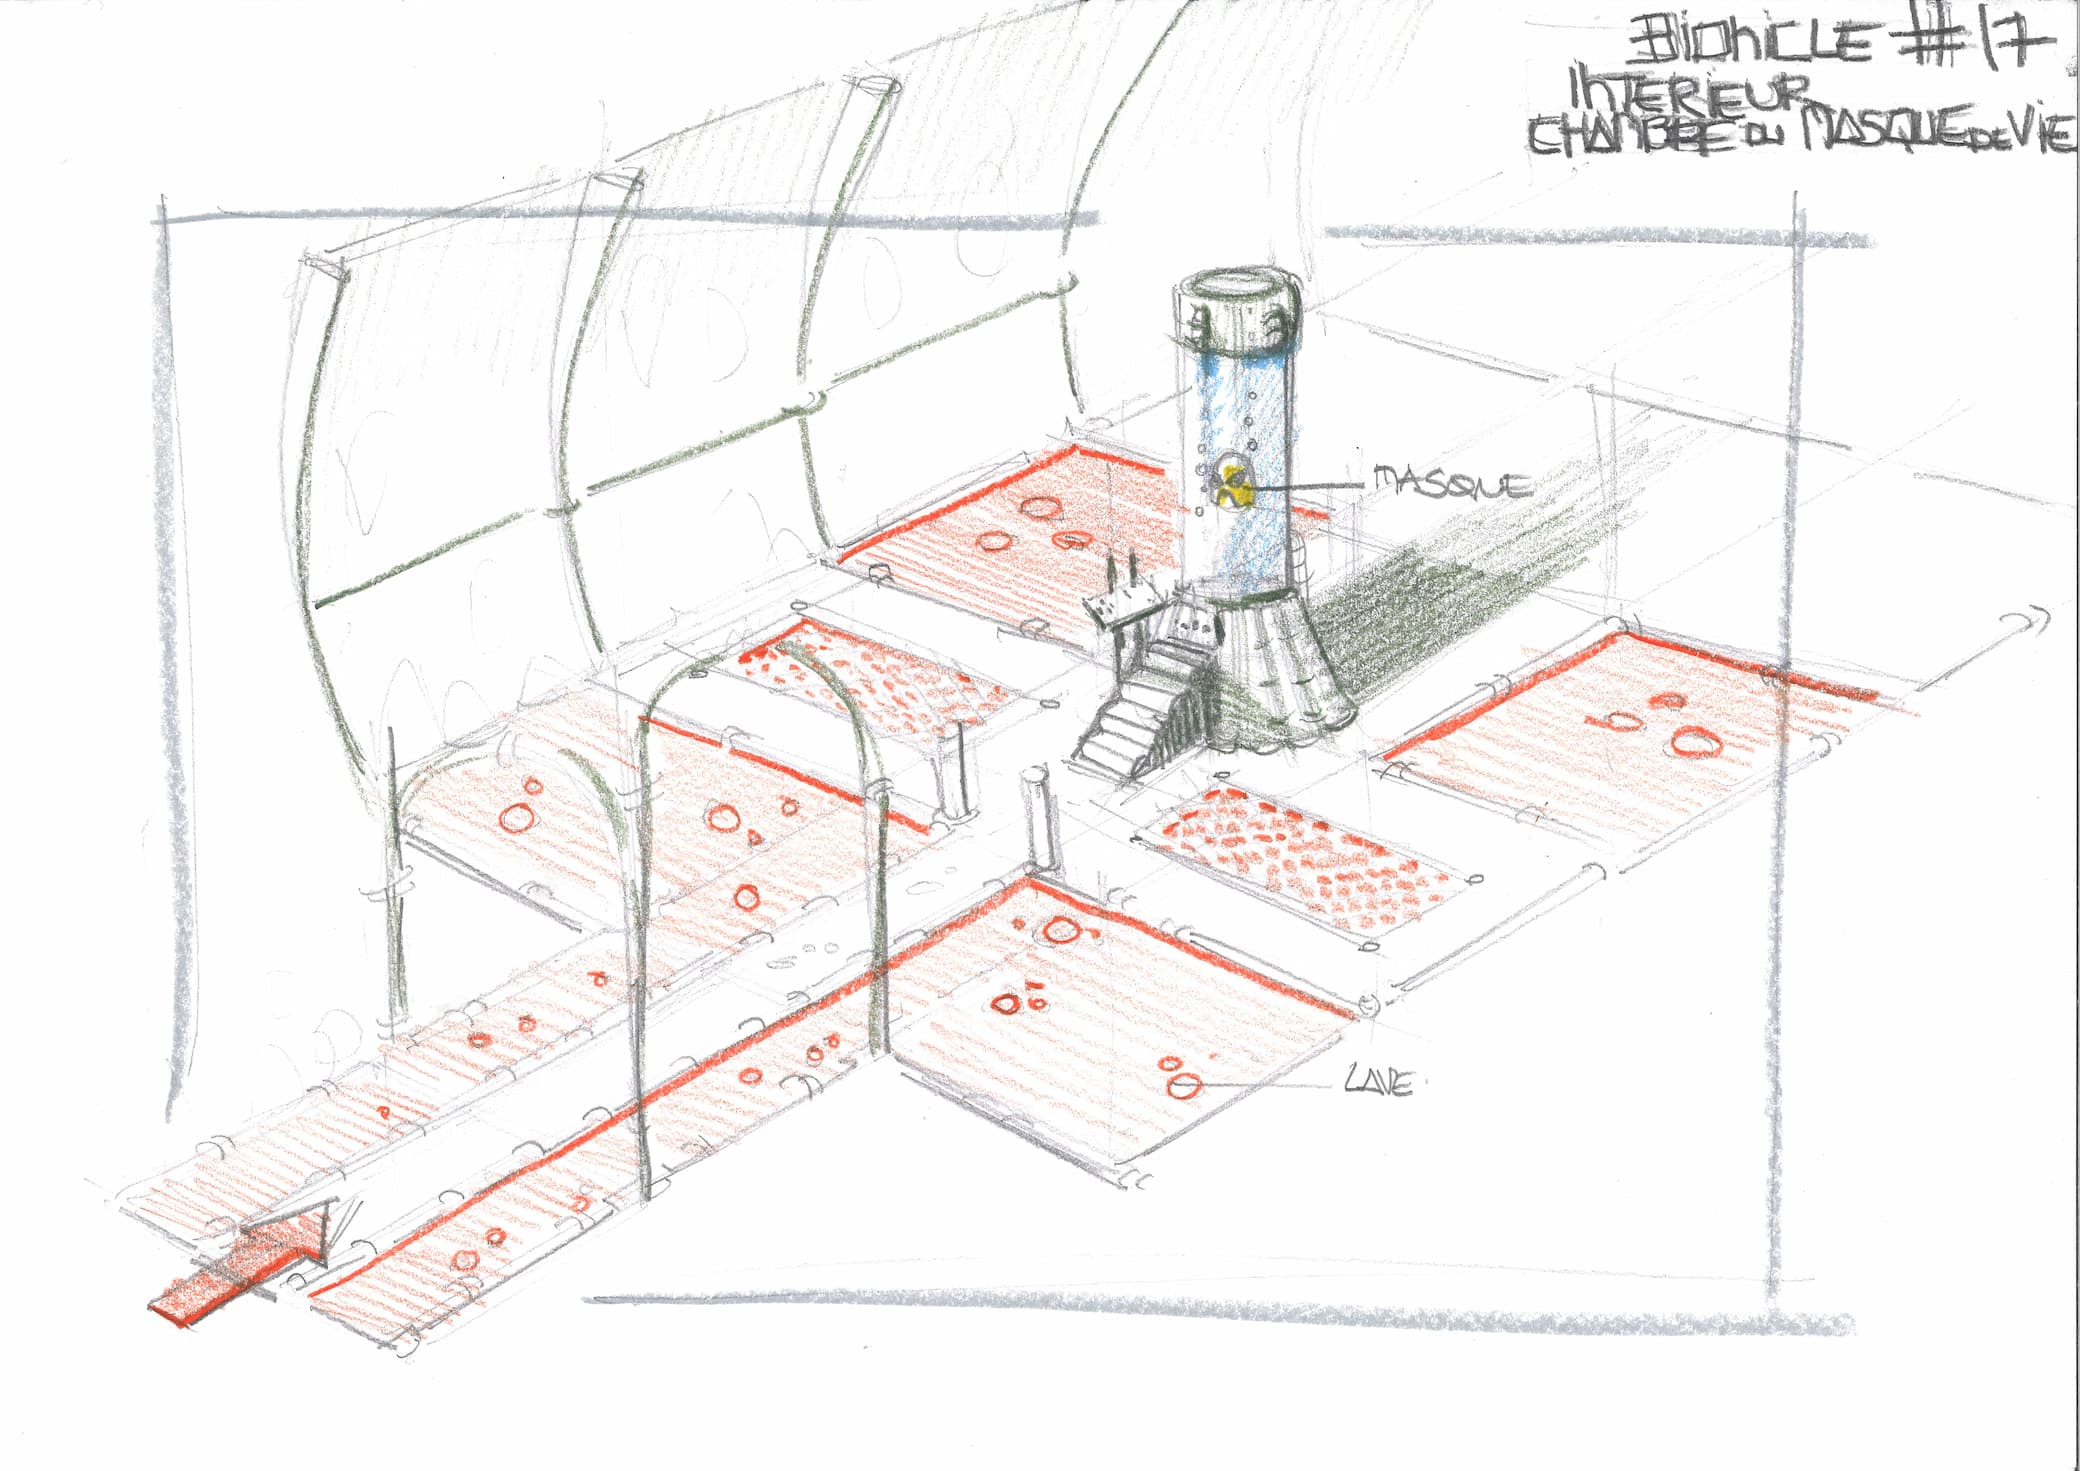 BIONICLE #17
INTERIEUR
CHAMBRE DU MASQUE DE VIE
MASQUE
LAVE